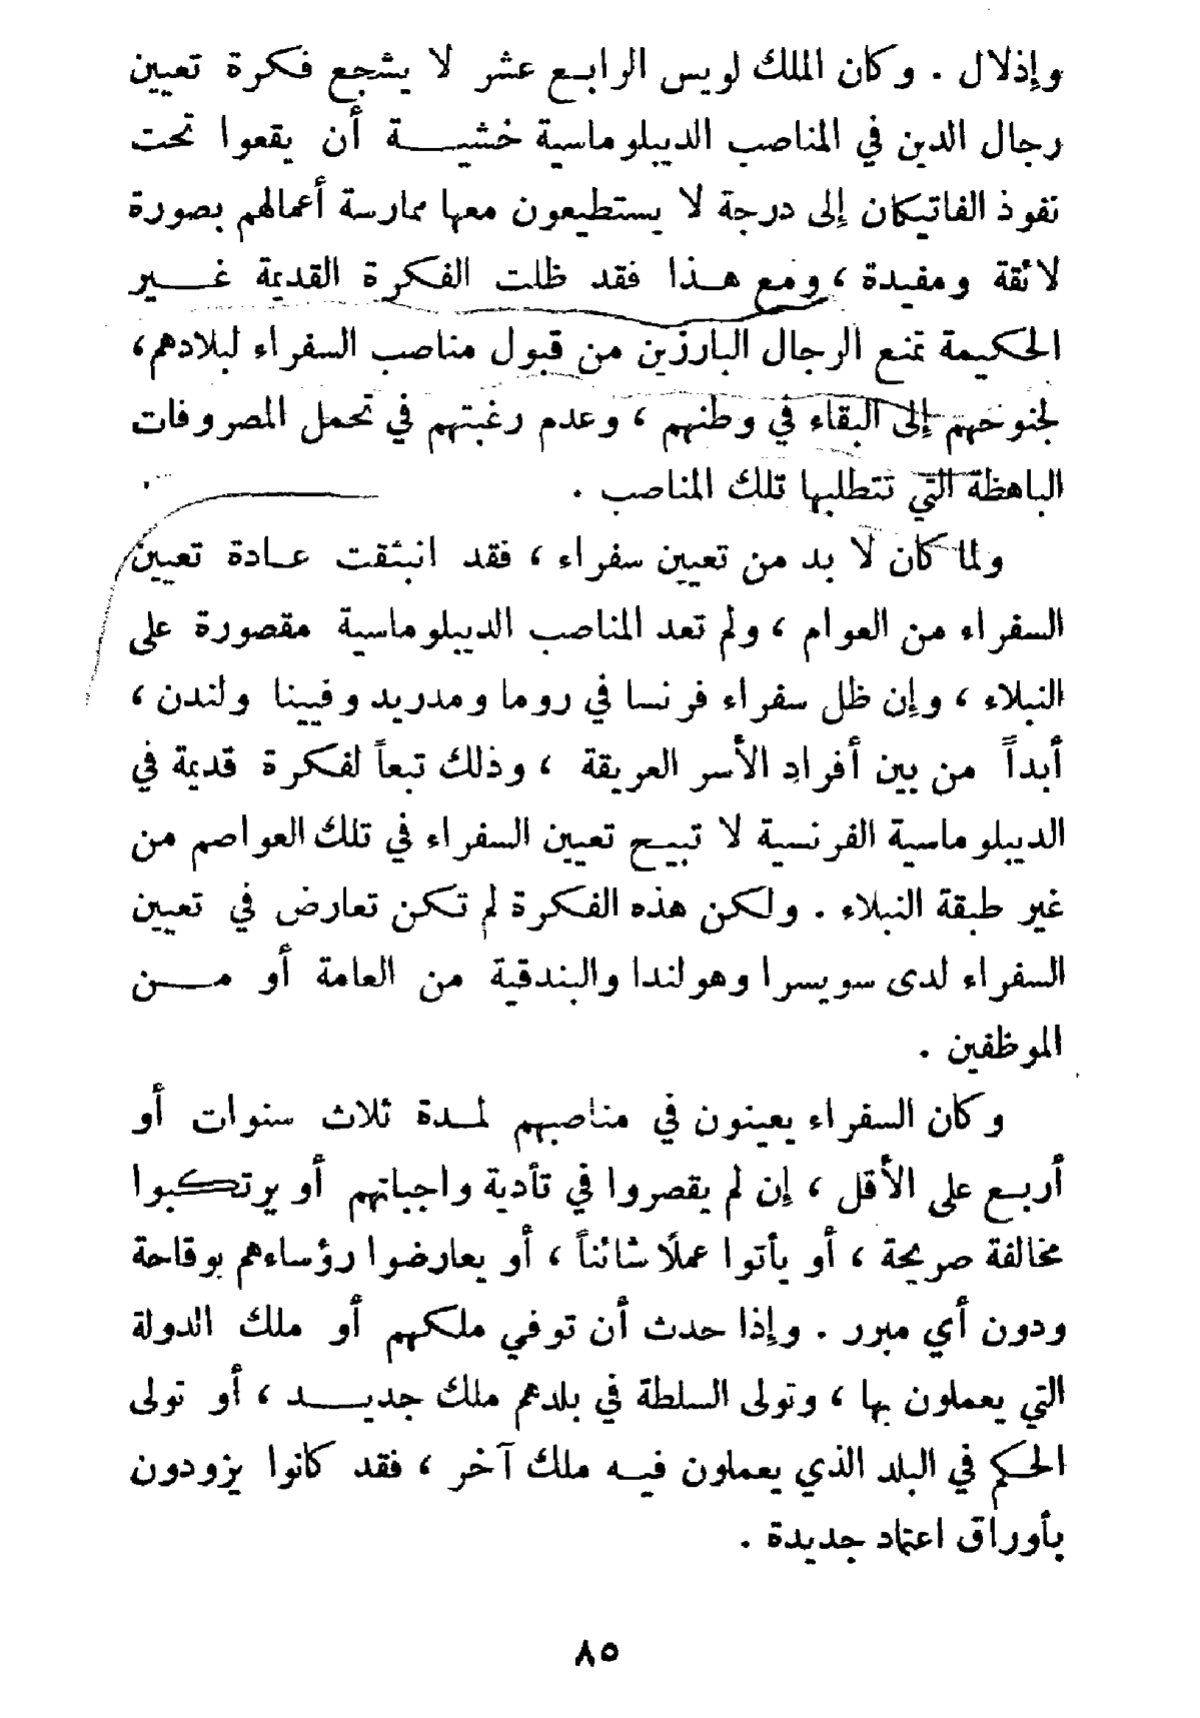 وإذلال . وكان الملك لويس الرابع عشر لا يشجع فكرة تعيين
رجال الدين في المناصب الديبلوماسية خشية أن يقعوا تحت
نفوذ الفاتيكان إلى درجة لا يستطيعون معها ممارسة أعمالهم بصورة
لائقة ومفيدة ، ومع هذا فقد ظلت الفكرة القديمة غير
الحكيمة تمنع الرجال البارزين من قبول مناصب السفراء لبلادهم ،
لجنوحهم إلى البقاء في وطنهم ، وعدم رغبتهم في تحمل المصروفات
الباهظة التي تتطلبها تلك المناصب .
ولما كان لا بد من تعيين سفراء ، فقد انبثقت عادة تعيين
السفراء من العوام ، ولم تعد المناصب الديبلوماسية مقصورة على
النبلاء ، وإن ظل سفراء فرنسا في روما ومدريد وفيينا ولندن ،
أبداً من بين أفراد الأسر العريقة ، وذلك تبعاً لفكرة قديمة في
الديبلوماسية الفرنسية لا تبيح تعيين السفراء في تلك العواصم من
غير طبقة النبلاء . ولكن هذه الفكرة لم تكن تعارض في تعيين
السفراء لدى سويسرا وهولندا والبندقية من العامة أو من
الموظفين .
وكان السفراء يعينون في مناصبهم لمدة ثلاث سنوات أو
أربع على الأقل ، إن لم يقصروا في تأدية واجباتهم أو يرتكبوا
مخالفة صريحة ، أو يأتوا عملًا شائناً ، أو يعارضوا رؤساءهم بوقاحة
ودون أي مبرر . وإذا حدث أن توفي ملكهم أو ملك الدولة
التي يعملون بها ، وتولى السلطة في بلدهم ملك جديد ، أو تولى
الحكم في البلد الذي يعملون فيه ملك آخر ، فقد كانوا يزودون
بأوراق اعتماد جديدة .
٨٥